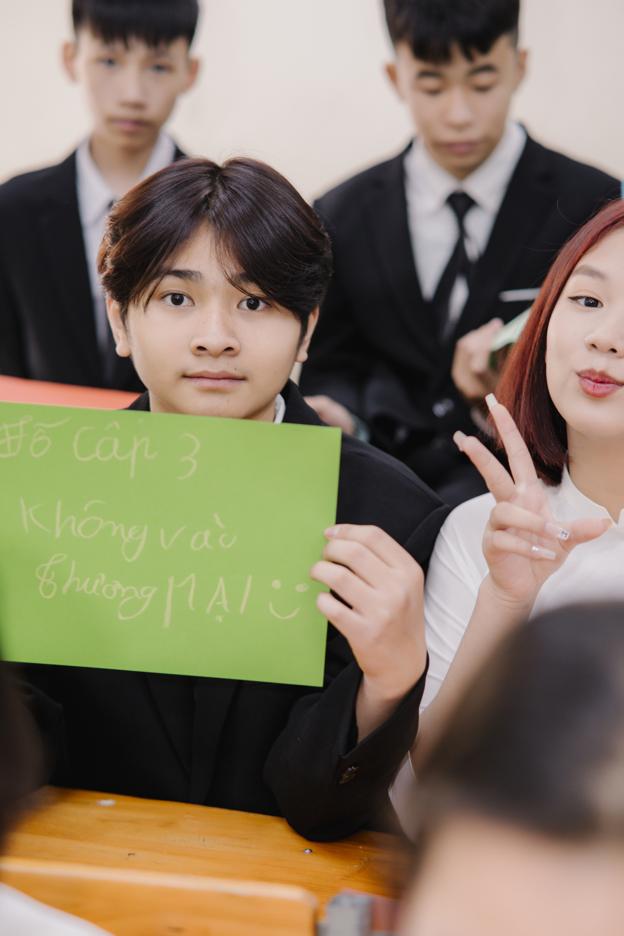 Đỗ Cấp 3
Không vào
Thương MẠI :)